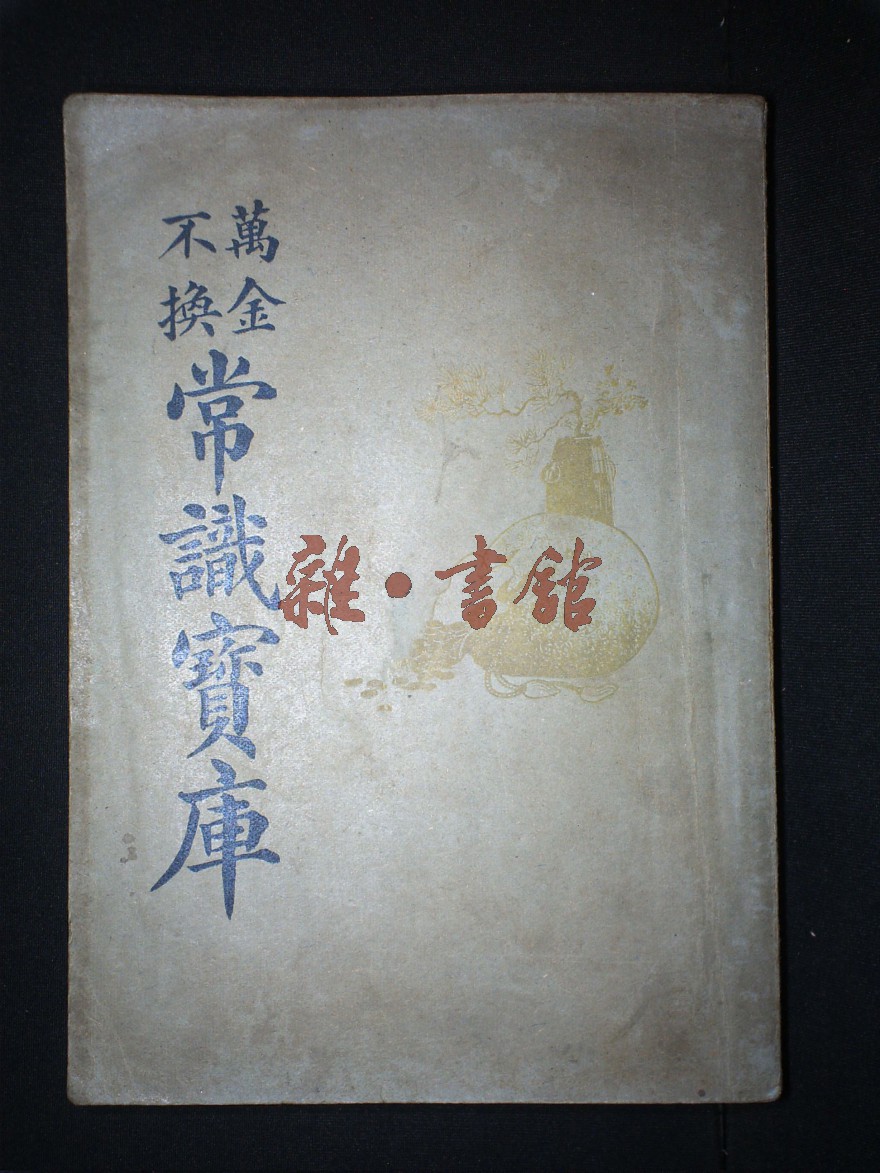 萬金
不換
常識寶庫
雜•書館